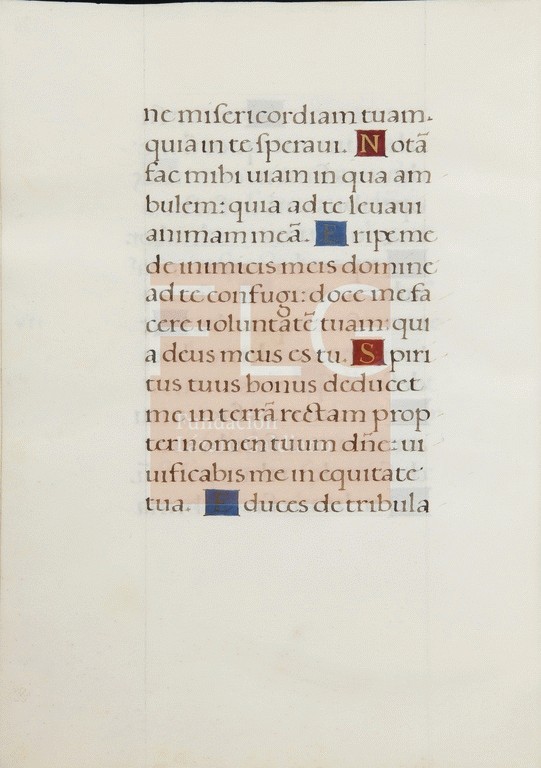 ne misericordiam tuam.
quia in te speraui. Notā
fac mihi uiam in qua am
bulem: quia ad te leuaui
animam meā. Eripe me
de inimicis meis domine
ad te confugi: doce me fa
cere uoluntatē tuam: qui
a deus meus es tu. Spiri
tus tuus bonus deducet
me in terrā rectam prop
ter nomen tuum dn̄e: ui
uificabis me in equitate
tua. Educes de tribula
FLG
Fundación